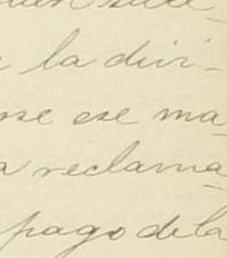 la divi-
se ese ma-
a reclama-
pago de la